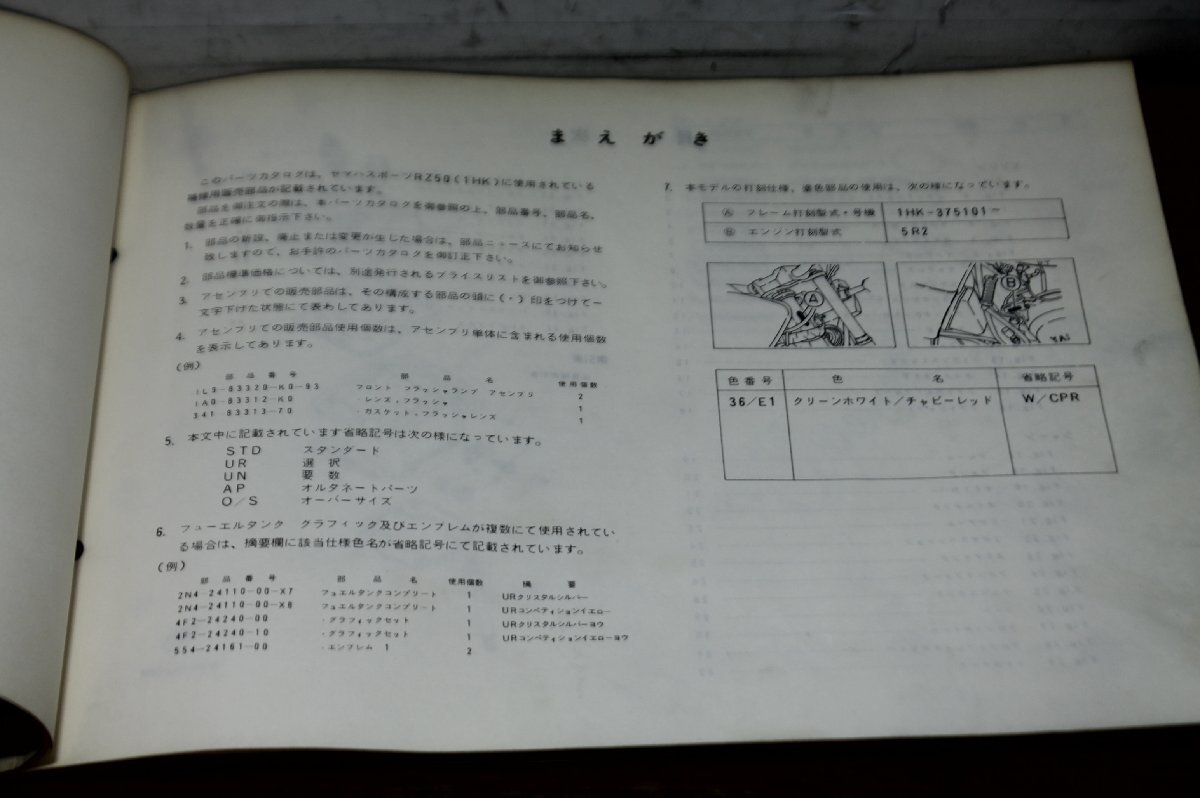 まえがき
このパーツカタログは、ヤマハスポーツRZ50(1HK)に使用されている
補修用販売部品が記載されています。
部品を御注文の際は、本パーツカタログを御参照の上、部品番号、部品名、
数量を正確に御指示下さい。
1. 部品の新設、廃止または変更が生じた場合は、部品ニュースにてお知らせ
致しますので、お手許のパーツカタログを御訂正下さい。
2. 部品標準価格については、別途発行されるプライスリストを御参照下さい。
3. アセンブリでの販売部品は、その構成する部品の頭に(・)印をつけて一
文字下げた状態にて表わしてあります。
4. アセンブリでの販売部品使用個数は、アセンブリ単体に含まれる使用個数
を表示してあります。
(例)
部品番号 部品名 使用個数
1L9-83320-K0-93 フロント フラッシャランプ アセンブリ 2
1A0-83312-K0 ・レンズ,フラッシャ 1
341-83313-70 ・ガスケット,フラッシャレンズ 1
5. 本文中に記載されています省略記号は次の様になっています。
STD スタンダード
UR 選択
UN 要数
AP オルタネートパーツ
O/S オーバーサイズ
6. フューエルタンク グラフィック及びエンブレムが複数にて使用されてい
る場合は、摘要欄に該当仕様色名が省略記号にて記載されています。
(例)
部品番号 部品名 使用個数 摘要
2N4-24110-00-X7 フュエルタンクコンプリート 1 URクリスタルシルバー
2N4-24110-00-X8 フュエルタンクコンプリート 1 URコンペティションイエロー
4F2-24240-00 ・グラフィックセット 1 URクリスタルシルバーヨウ
4F2-24240-10 ・グラフィックセット 1 URコンペティションイエローヨウ
554-24161-00 ・エンブレム 1 2
7. 本モデルの打刻仕様、着色部品の使用は、次の様になっています。
Ⓐ フレーム打刻型式・号機 1HK-375101~
Ⓑ エンジン打刻型式 5R2
A
B
色番号 色名 省略記号
36/E1 クリーンホワイト/チャピーレッド W/CPR